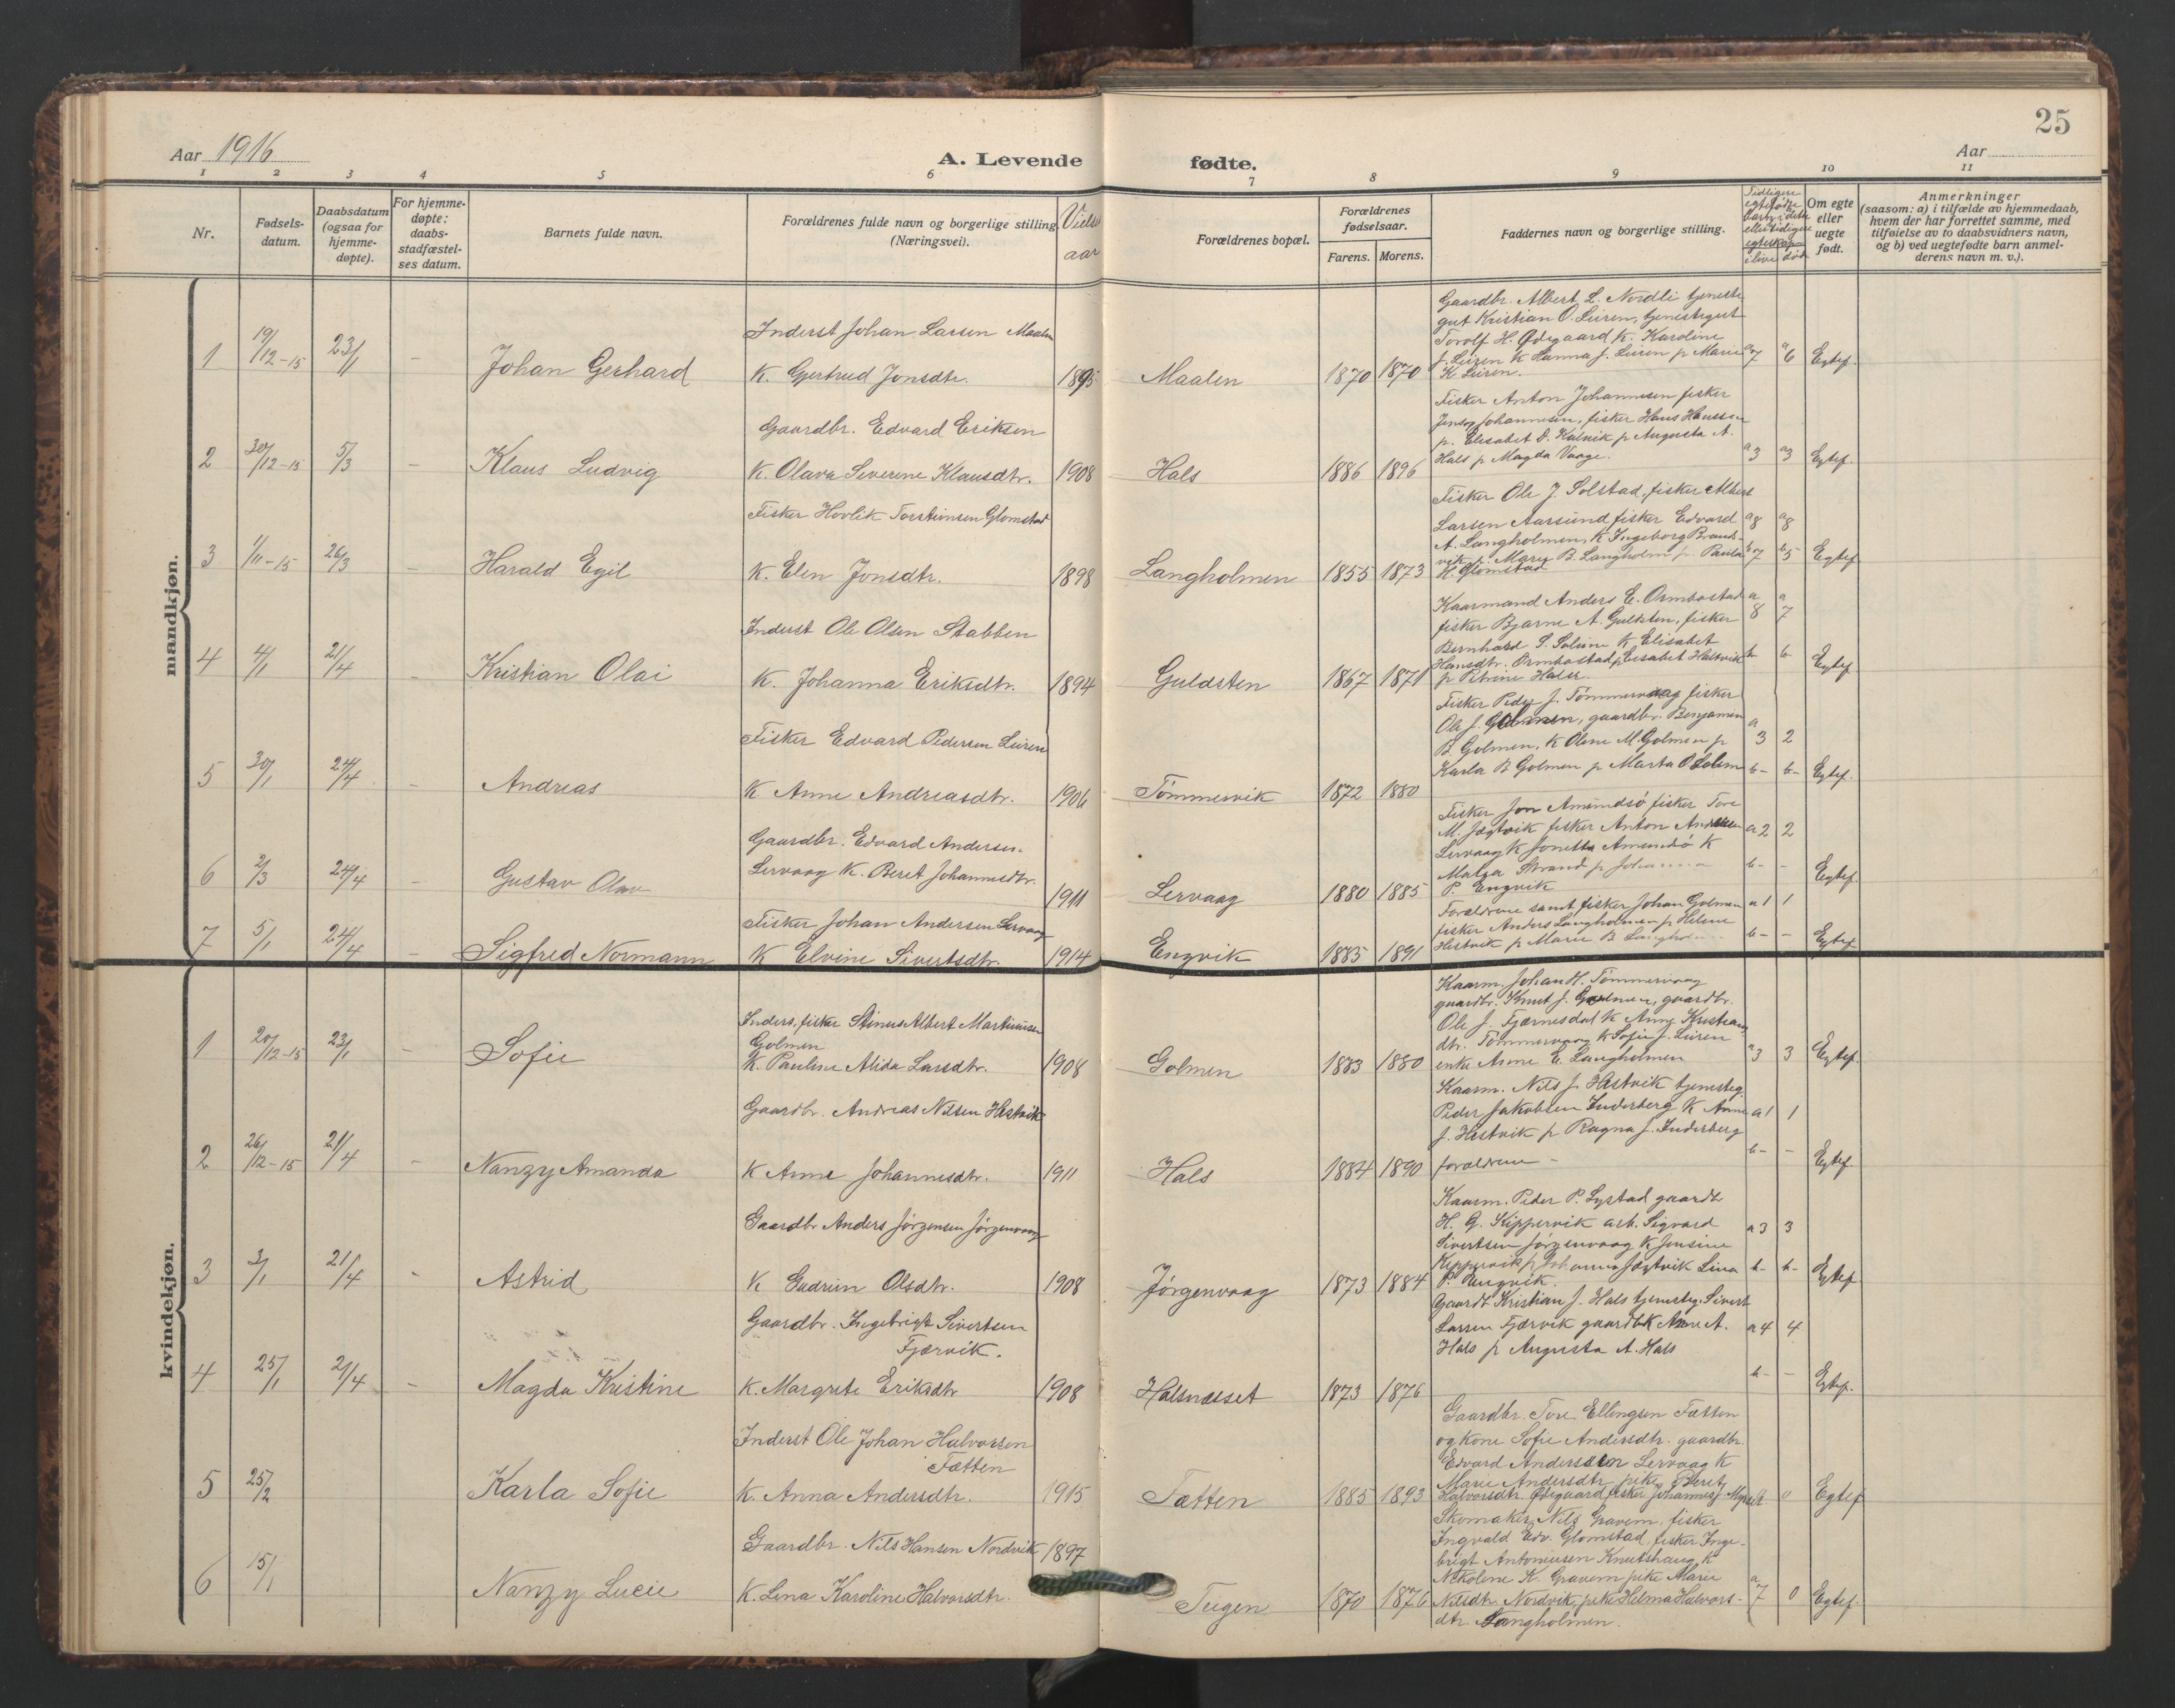 25
Aar 1916
A. Levende fødte.
Aar
1 2 3 4 5 6 7 8 9 10 11
Nr.
Fødsels-datum.
Daabsdatum (ogsaa for hjemme-døpte).
For hjemme-døpte: daabs-stadfæstel-ses datum.
Barnets fulde navn.
Forældrenes fulde navn og borgerlige stilling (Næringsvei).
Vielses aar
Forældrenes bopæl.
Forældrenes fødselsaar.
Farens. Morens.
Faddernes navn og borgerlige stilling.
Om egte eller uegte født.
Anmerkninger
(saasom: a) i tilfælde av hjemmedaab,
hvem der har forrettet samme, med
tilføielse av to daabsvidners navn,
og b) ved uegtefødte barn anmel-
derens navn m. v.).
mandkjøn.
1 19/12-15 23/1 - Johan Gerhard
Inderst Johan Larsen Maalen
K. Gertrud Jonsdtr. 1895 Maalen 1870 1870
Gaardbr. Albert L. Nordli tjeneste
gut Kristian O. Leiren, tjenestegut
Torolf H. Ødegaard K. Karoline
J. Leiren K Hanna J. Leiren p Marie
K Leiren.
a7 a6 Egtef.
2 30/12-15 5/3 - Klaus Ludvig
Gaardbr. Edvard Eriksen
K. Olava Severine Klausdtr. 1908 Hals 1886 1896
Fisker Anton Johannesen fisker
Johannesen, fisker Hans Hanssen
p. Elisabet D. Kalvik p Augusta A.
Hals p Magda Vaage.
a3 a3 Egtef.
3 1/11-15 26/3 - Harald Egil
Fisker Hovlik Torstensen Glomstad
K. Elen Jonsdtr. 1898 Langholmen 1855 1873
Fisker Ole J. Solstad, fisker Albert
Larsen Aarsund fisker Edvard
A. Langholmen, K Ingeborg Brand-
vik p. Marie B. Langholm p. Paula
H. Glomstad
a8 a8
b7 b5 Egtef
4 4/1 21/4 - Kristian Olai
Inderst Ole Olsen Stabben
K. Johanna Eriksdtr. 1894 Guldsten 1867 1871
Kaarmand Anders E. Ormbostad
fisker Bjarne A. Guldsten, fisker
Bernhard S. K Elisabet
Hansdtr. Ormbostad p Elisabet Hestvik
p Petrine Halse.
a 8 a 7
b- b- Egtef
5 30/1 24/4 - Andreas
Fisker Edvard Pedersen Leiren
K Anne Andreasdtr. 1906 Tömmervik 1872 1880
Fisker Peder J. Tömmervaag fisker
Ole J. Golmen, gaardbr. Benjamen
B. Golmen, K Oline M. Golmen p
Karla B Golmen p Marta O
a 3 2
b- b- Egtef.
6 2/3 24/4 - Gustav Olav
Gaardbr. Edvard Andersen
Lervaag K. Beret Johannesdtr. 1911 Lervaag 1880 1885
Fisker Jon Amundsö fisker Tore
M. Jægtvik fisker Anton Andersen
Lervaag K Jonetta Amundsö K
Strand p Johanna
P. Engvik
a2 2
b- - Egtef.
7 5/1 24/4 - Sigfred Normann
Fisker Johan Andersen Lervaag
K Elvine Sivertsdtr. 1914 Engvik 1885 1891
Forældrene samt fisker Johan Golmen
fisker Anders Langholmen p Helene
Hestvik p Marie B
a1 1
b- - Egtef
kvindekjøn.
1 20/12-15 23/1 - Sofie
Inders, fisker Stinus Albert Martinusen
Golmen
K. Pauline Alida Larsdtr. 1908 Golmen 1883 1880
Kaarm. Johan H. Tömmervaag
gaardbr. Knut J. Golmen, gaardbr.
Ole J. Fjærnesdal K Anne Kristians
dtr. Tömmervaag K Sofie J. Leiren
enke Anne E. Langholmen
a3 3 Egtef.
2 26/12-15 21/4 - Nanzy Amanda
Gaardbr. Andreas Nilsen Hestvik
K Anne Johannesdtr. 1911 Hals 1884 1890
Kaarm. Nils J. Hestvik tjensteg.
Peder Jakobsen Inderberg K Anne
J. Hestvik p Ragna J. Inderberg
forældrene -
a1 1
b- - Egtef
3 3/1 21/4 - Astrid
Gaardbr Anders Jörgensen Jörgenvaag
K Gudrun Olsdtr. 1908 Jörgenvaag 1873 1884
Kaarm. Peder P. Lystad gaardb
H. G. Kippervik arb. Sigvard
Sivertsen Jörgenvaag K Jensine
Kippervik p Johanna Jægtvik Lina
P. Engvik.
a3 3
b- b- Egtef
4 25/1 21/4 - Magda Kristine
Gaardbr. Ingebrigt Sivertsen
Fjærvik.
K. Margrete Eriksdtr 1908 Halsnesset 1873 1876
Gaardb Kristian J. Hals tjensteg. Sivert
Larsen Fjærvik gaardbK A.
Hals p Augusta A. Hals
a4 4
b- - Egtef.
5 25/2 Karla Sofie
Inderst Ole Johan Halvorsen
Fætten
K. Anna Andersdtr. 1915 Fætten 1885 1893
Gaardbr. Tore Ellingsen Fætten
og Kone Sofie Andersdtr. gaardbr.
Edvard Andersen Lervaag K
Marie Andersdtr pike Beret
Halvorsdtr. Ødegaard fisker Johannes J.
0 Egtef
6 15/1 Nanzy Lucie
Gaardbr. Nils Hansen Nordvik 1897
K. Lina Karoline Halvorsdtr. Teigen 1870 1876
Skomaker Nils Gravem, fisker
Ingvald Edv. Glomstad, fisker Inge-
brigt Antoniusen Knutshaug K
Nikoline K. Gravem pike Marie
Nilsdtr. Nordvik, pike Helma Halvors-
dtr. Langholmen.
a 7 0 Egtef.